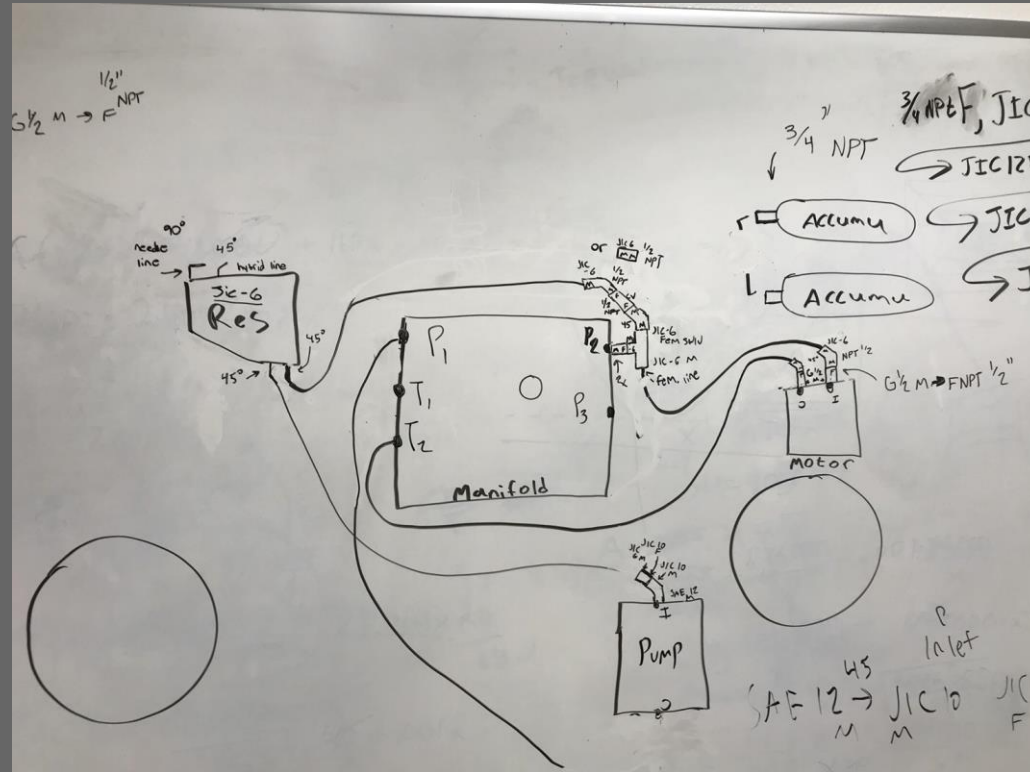 1/2"
G 1/2 M → F NPT
3/4 NPT F, JIC
3/4" NPT
JIC 12
JIC
Accumu
Accumu
90°
needle
line
45°
hybrid line
Jic-6
Res
45°
45°
or
JIC 6
M M
1/2
NPT
JIC-6
1/2
NPT
1/2
NPT
45
JIC-6
Fem swivl
JIC-6 M
Fem line
P1
T1
T2
P2
P3
Manifold
JIC-6
NPT 1/2
G 1/2
M
G 1/2 M → FNPT 1/2"
O
I
Motor
JIC
6M
JIC 10
F
JIC 10
M
SAE 12
M
I
Pump
O
P
Inlet
45
SAE 12 → JIC 10
M
M
JIC
F